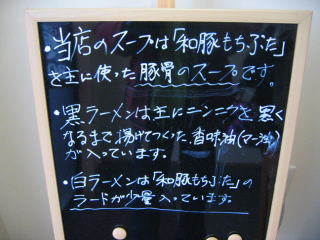 ・当店のスープは「和豚もちぶた」
を主に使った豚骨のスープです。
・黒ラーメンは主にニンニクを黒く
なるまで揚げてつくった、香味油(マー油)
が入っています。
・白ラーメンは「和豚もちぶた」の
ラードが少量入っています。